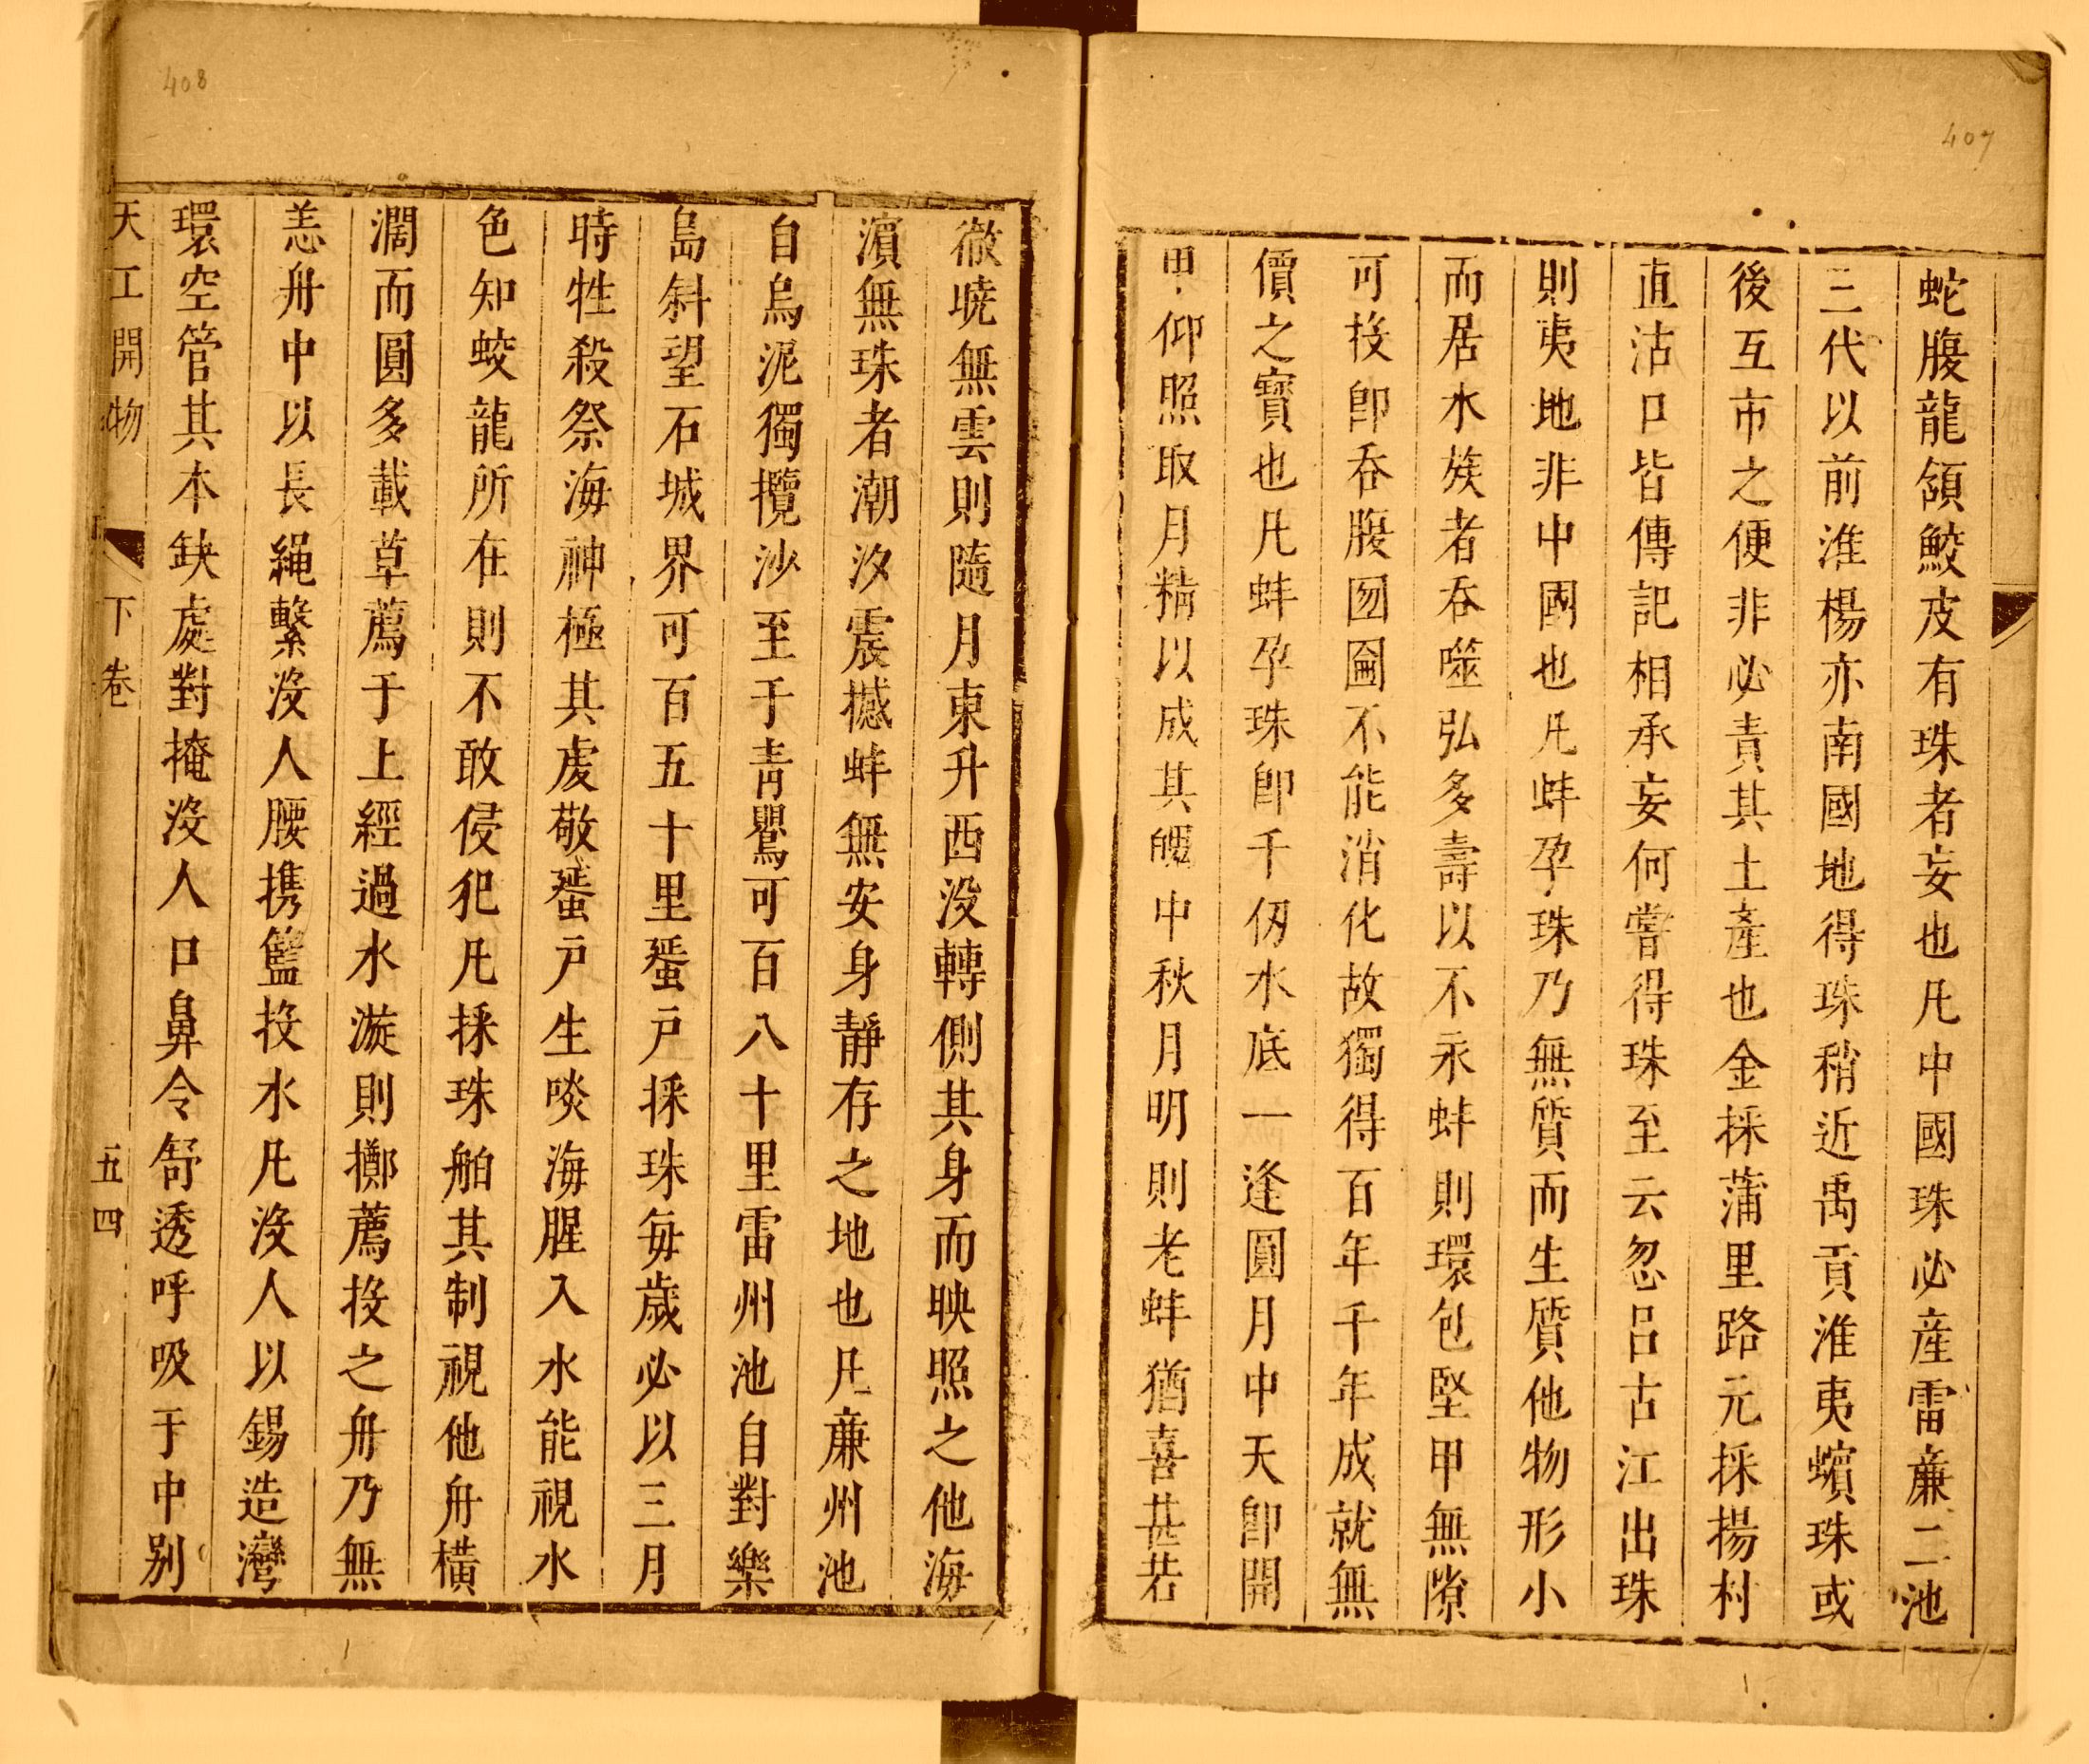 407
蛇腹龍頷鮫皮有珠者妄也凡中國珠必產雷亷二池
三代以前淮楊亦南國地得珠稍近禹貢淮夷蠙珠或
後互市之便非必責其土產也金採蒲里路元採揚村
直沽口皆傳記相承妄何嘗得珠至云忽呂古江出珠
則夷地非中國也凡蚌孕珠乃無質而生質他物形小
而居水族者吞噬弘多壽以不永蚌則環包堅甲無隙
可投卽吞腹囫圇不能消化故獨得百年千年成就無
價之寳也凡蚌孕珠卽千仞水底一逢圓月中天卽開
甲仰照取月精以成其魄中秋月明則老蚌猶喜甚若
408
徹曉無雲則隨月東升西没轉側其身而映照之他海
濱無珠者潮汐震撼蚌無安身靜存之地也凡亷州池
自烏泥獨攬沙至于青鸎可百八十里雷州池自對樂
島斜望石城界可百五十里蜑戶採珠每歲必以三月
時牲殺祭海神極其虔敬蜑戶生啖海腥入水能視水
色知蛟龍所在則不敢侵犯凡採珠舶其制視他舟橫
濶而圓多載草薦于上經過水漩則擲薦投之舟乃無
恙舟中以長繩繫沒人腰携籃投水凡沒人以錫造灣
環空管其本缺處對掩沒人口鼻令舒透呼吸于中别
天工開物 下卷 五四